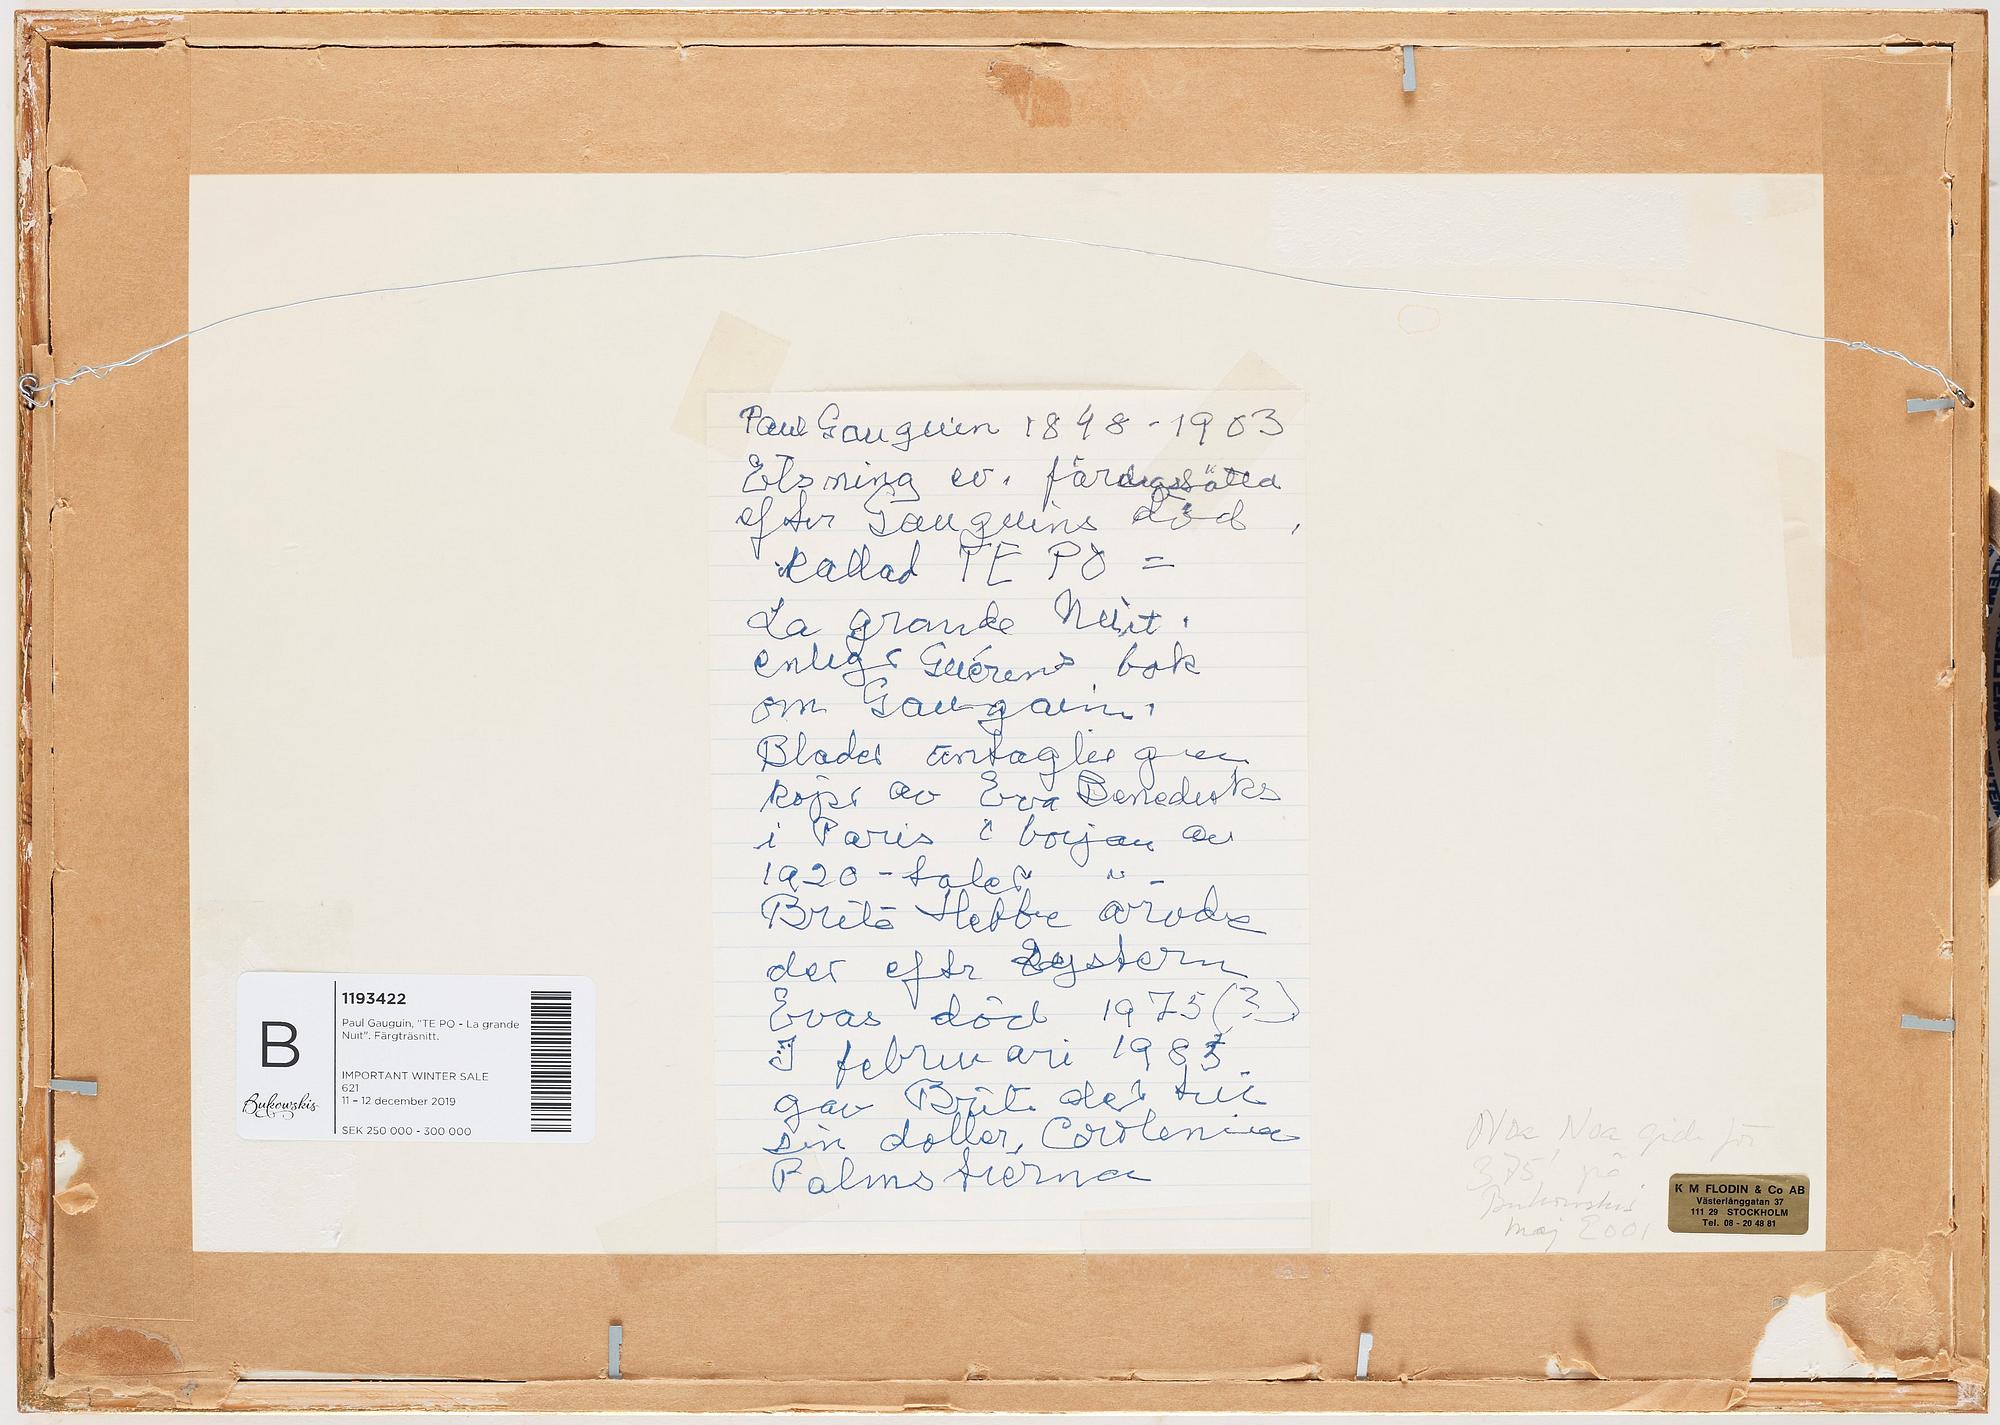 Paul Gauguin 1848-1903
Etsning ev. färdigställd
efter Gauguins död,
kallad TE PO =
La grande Nuit.
enligt Guérins bok
om Gauguin.
Bladet antagligen
köpt av Eva Benedicks
i Paris i början av
1920-talet " -
Brita Hebbe ärvde
det eftr systern
Evas död 1975(?)
I februari 1983
gav Brita det till
sin dotter, Carolenina
Palmstierna
B
Bukowskis
1193422
Paul Gauguin, "TE PO - La grande
Nuit". Färgträsnitt.
IMPORTANT WINTER SALE
621
11 – 12 december 2019
SEK 250 000 - 300 000
Noa Noa gick för
375' på
Bukowskis
maj 2001
K M FLODIN & Co AB
Västerlånggatan 37
111 29 STOCKHOLM
Tel. 08 - 20 48 81